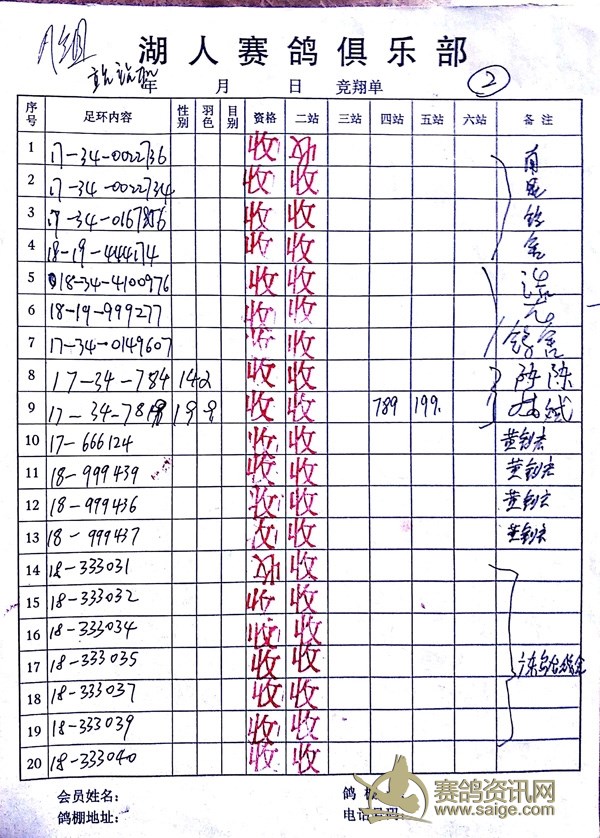 A组
湖人赛鸽俱乐部
年 月 日 竞翔单 2
序号 足环内容 性别 羽色 目别 资格 二站 三站 四站 五站 六站 备注
1 17-34-0022736 收 收
2 17-34-0022734 收 收
3 17-34-0167876 收 收
4 18-19-444174 收 收
5 18-34-4100976 收 收
6 18-19-999277 收 收
7 17-34-0149607 收 收 鸽舍
8 17-34-784 142 收 收
9 收 收 789 199.
10 17-666124 收 收
11 18-999439 收 收
12 18-999436 收 收
13 18-999437 收 收
14 18-333031 收 收
15 18-333032 收 收
16 18-333034 收 收
17 18-333035 收 收
18 18-333037 收 收
19 18-333039 收 收
20 18-333040 收 收
会员姓名:
鸽棚地址:
电话号码:
赛鸽资讯网
www.saige.com